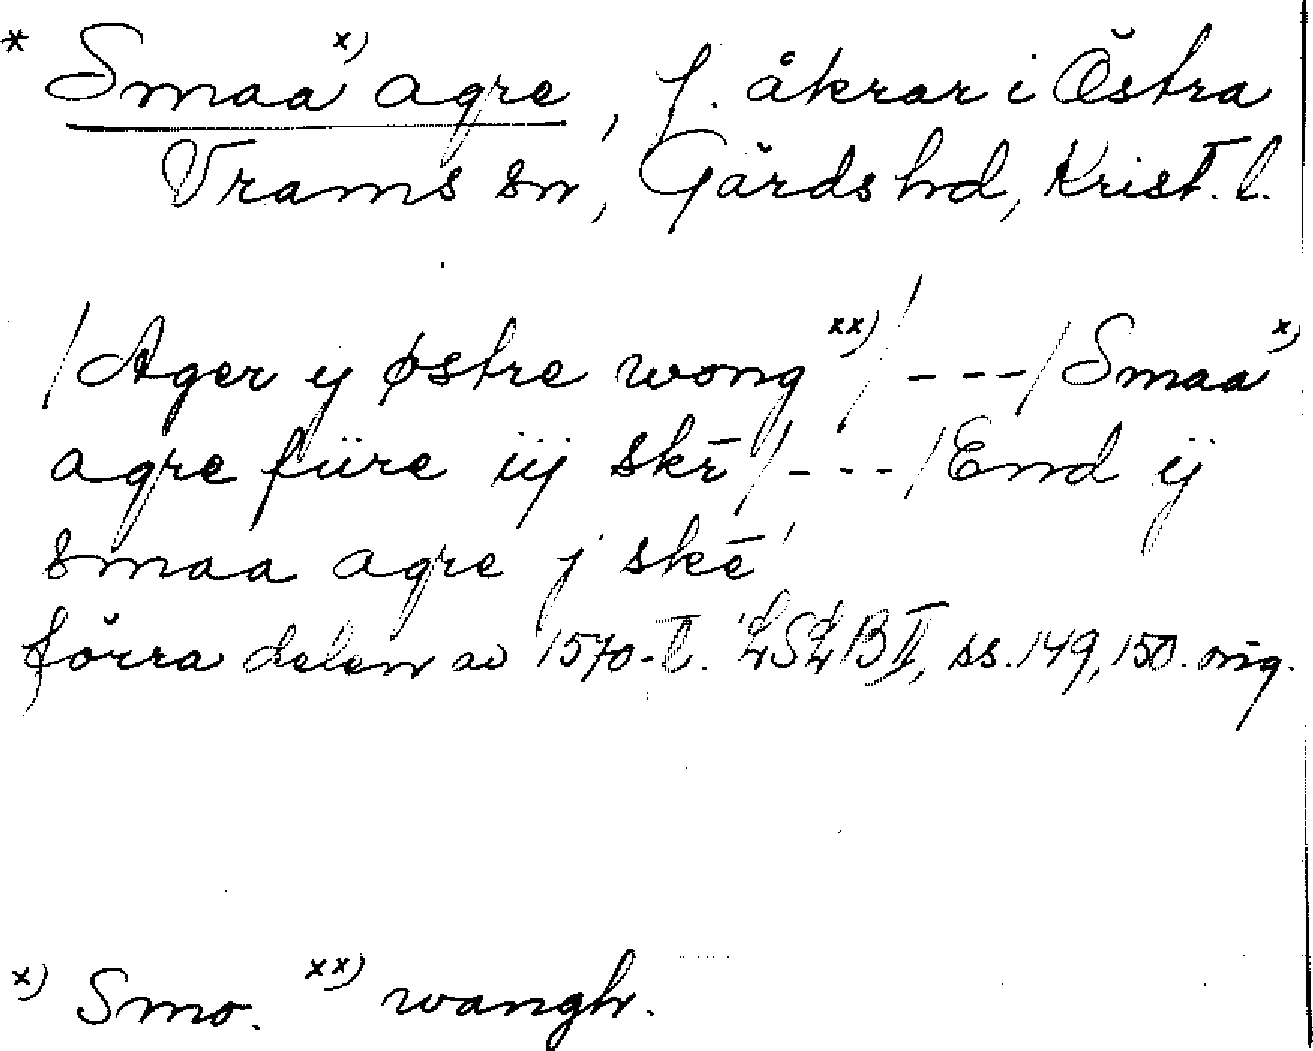 * Smaa x) agre, f. åkrar i Östra
Vrams sn, Gärds hd, Krist. l.
/Ager ij østre wong xx)/ --- / Smaa x)
agre füre iij skē / --- / End ij
smaa agre j skē
förra delen av 1570-t. LSLB II, ss. 149, 150. orig.
x) Smo. xx) wangh.